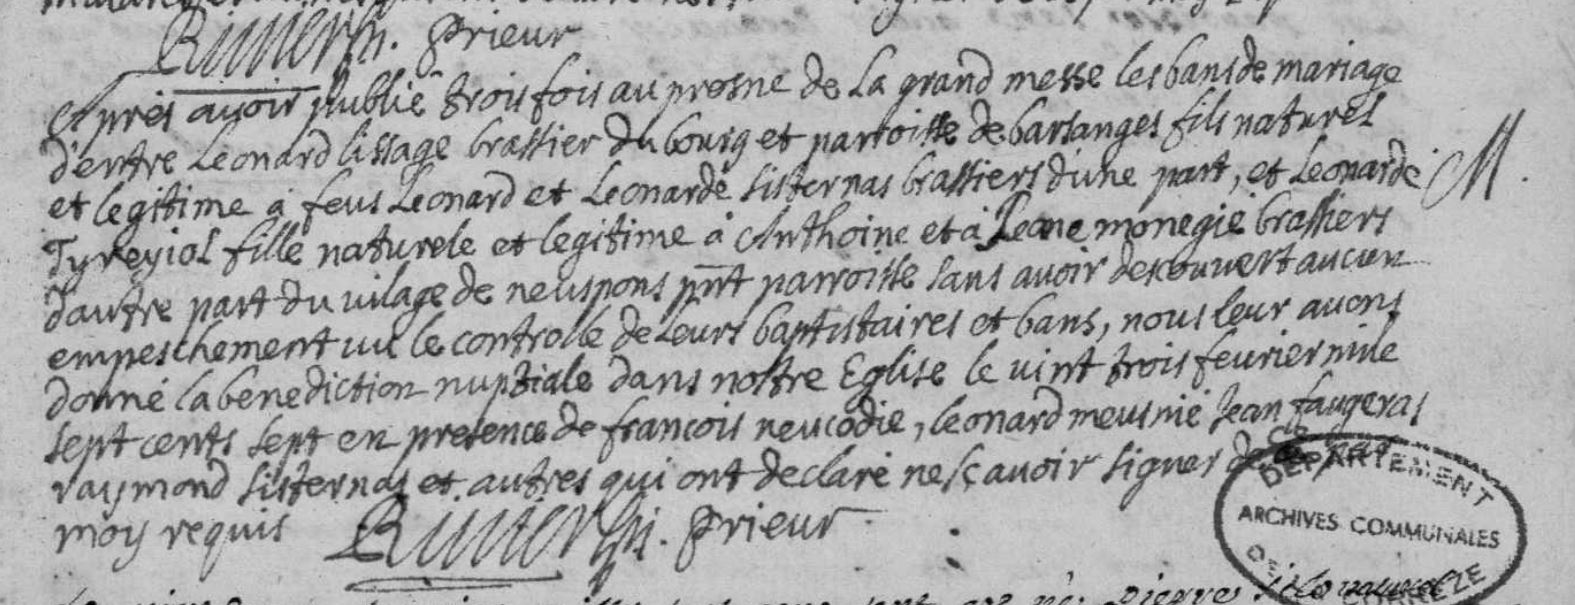 prieur
Après avoir publié trois fois au prosne de La grand messe les bans de mariage
d'entre Leonard lissage brassier du bourg et parroisse de barsanges fils naturel
et legitime à feus Leonard et Leonarde sisternas brassiers dune part, et Leonarde
M.
Tyreyiol fille naturele et legitime à Anthoine et à Jeane monegié brassiers
dautre part du vilage de neuspons pnt parroisse sans avoir descouvert aucun
empeschement vu le controlle de Leurs baptistaires et bans, nous leur avons
donné la benediction nuptiale dans nostre Eglise le vint trois fevrier mile
sept cents sept en presence de francois neucodie, leonard meusnié Jean faugeras
raymond sisternas et autres qui ont declaré ne sçavoir signer de ce par
moy requis
prieur
DEPARTEMENT
ARCHIVES COMMUNALES
CORREZE